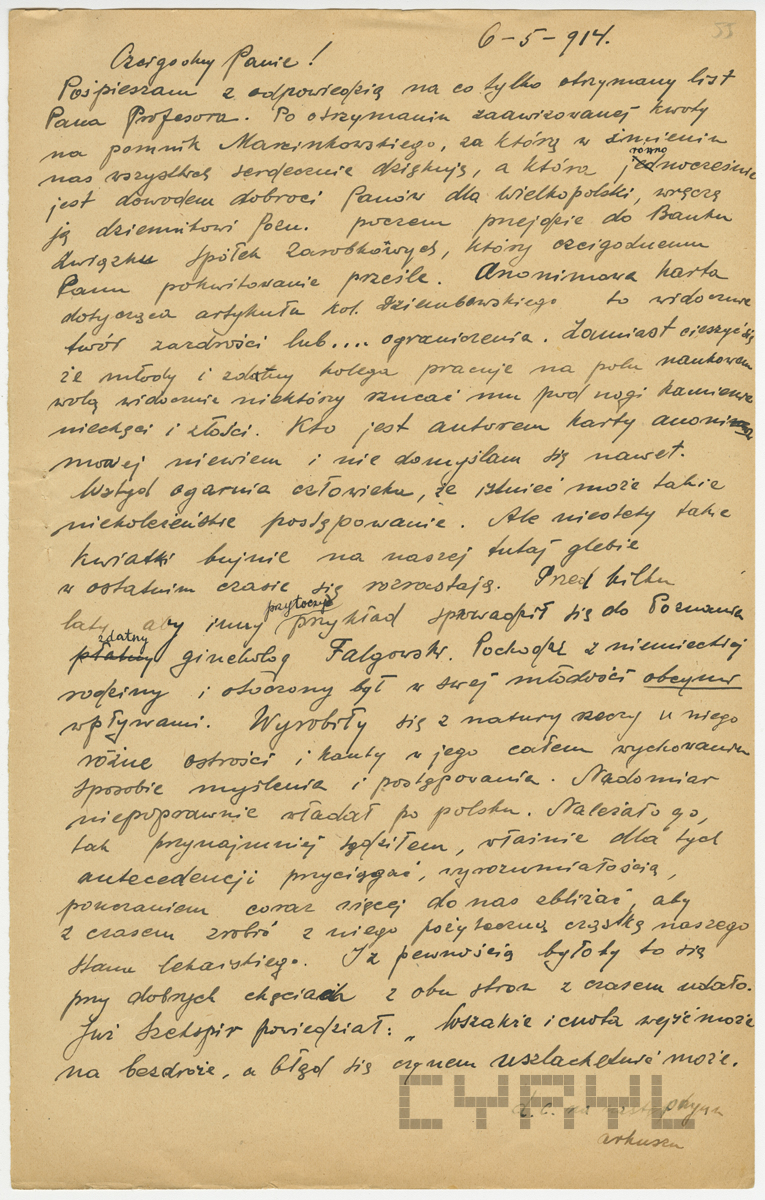 55
6-5-914.
Czcigodny Panie!
Pośpieszam z odpowiedzią na co tylko otrzymany list
Pana Profesora. Po otrzymaniu zaawizowanej kwoty
na pomnik Marcinkowskiego, za którą w imieniu
nas wszystkich serdecznie dziękuję, a która jednocześnie
równo
jest dowodem dobroci Panów dla Wielkopolski, wręczę
ją dziennikowi Pozn. poczem przejdzie do Banku
Związku Spółek Zarobkowych, który czcigodnemu
Panu pokwitowanie prześle. Anonimowa karta
dotycząca artykułu kol. Dziembowskiego to widocznie
twór zazdrości lub.... ograniczenia. Zamiast cieszyć się
że młody i zdatny kolega pracuje na polu naukowem
wolą widocznie niektórzy rzucać mu pod nogi kamienie
niechęci i złości. Kto jest autorem karty anoni
mowej niewiem i nie domyślam się nawet.
Wstyd ogarnia człowieka, że istnieć może takie
niekoleżeńskie postępowanie. Ale niestety takie
kwiatki bujnie na naszej tutaj glebie
w ostatnim czasie się rozrastają. Przed kilku
laty, aby inny przytoczyć przykład sprowadził się do Poznania
zdatny
płatny ginekolog Falgowski. Pochodzi z niemieckiej
rodziny i otoczony był w swej młodości obcymi
wpływami. Wyrobiły się z natury rzeczy u niego
różne ostrości i kanty w jego całem wychowaniu
sposobie myślenia i postępowania. Nadomiar
niepoprawnie władał po polsku. Należało go,
tak przynajmniej sądziłem, właśnie dla tych
antecedencji przyciągać, wyrozumiałością,
pouczaniem coraz więcej do nas zbliżać, aby
z czasem zrobić z niego pożyteczną cząstkę naszego
stanu lekarskiego. I z pewnością byłoby to się
przy dobrych chęciach z obu stron z czasem udało.
Już Szekspir powiedział: „Wszakże i cnota wejść może
na bezdroże, a błąd się czynem uszlachetnić może.
d. c. na następnym
arkuszu
CYRYL